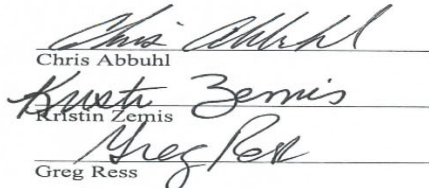 Chris Abbuhl
Chris Abbuhl
Kristin Zemis
Kristin Zemis
Greg Ress
Greg Ress